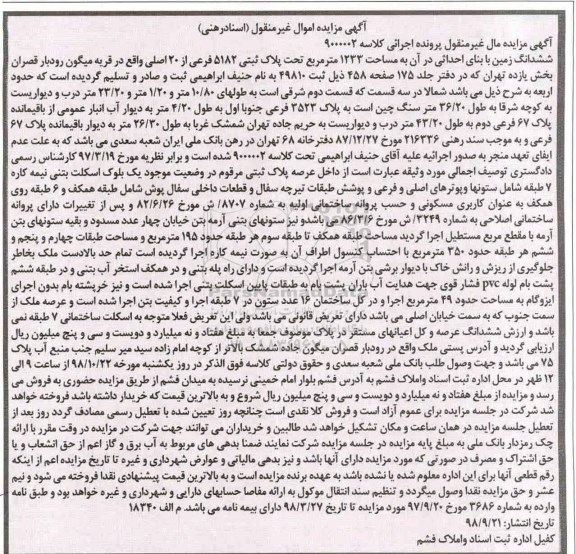 آگهی مزایده اموال غیرمنقول (اسنادرهنی)
آگهی مزایده مال غیرمنقول پرونده اجرائی کلاسه ۹۰۰۰۰۰۲
ششدانگ زمین با بنای احداثی در آن به مساحت ۱۲۳۳ مترمربع تحت پلاک ثبتی ۵۱۸۲ فرعی از ۲۰ اصلی واقع در قریه میگون رودبار قصران
بخش یازده تهران که در دفتر جلد ۱۷۵ صفحه ۴۵۸ ذیل ثبت ۴۹۸۱۰ به نام حنیف ابراهیمی ثبت و صادر و تسلیم گردیده است که حدود
اربعه به شرح ذیل می باشد شمالا در سه قسمت که قسمت دوم شرقی است به طولهای ۱۰/۸۰ متر و ۱/۲۰ متر و ۲۳/۲۰ متر درب و دیواریست
به کوچه شرقا به طول ۳۶/۲۰ متر سنگ چین است به پلاک ۳۵۲۳ فرعی جنوبا اول به طول ۴/۲۰ متر به دیوار آب انبار عمومی از باقیمانده
پلاک ۶۷ فرعی دوم به طول ۴۳/۲۰ متر درب و دیواریست به حریم جاده تهران شمشک غربا به طول ۲۶/۳۰ متر به دیوار باقیمانده پلاک ۶۷
فرعی و به موجب سند رهنی ۲۱۶۳۳۶ مورخ ۸۷/۱۲/۲۷ دفترخانه ۶۸ تهران در رهن بانک ملی ایران شعبه سعدی می باشد که به علت عدم
ایفای تعهد منجر به صدور اجرائیه علیه آقای حنیف ابراهیمی تحت کلاسه ۹۰۰۰۰۰۲ شده است و برابر نظریه مورخ ۹۷/۳/۱۹ کارشناس رسمی
دادگستری توصیف اجمالی مورد وثیقه عبارت است از داخل عرصه پلاک ثبتی مرقوم در وضعیت موجود یک بلوک اسکلت بتنی نیمه کاره
۷ طبقه شامل ستونها وپوترهای اصلی و فرعی و پوشش طبقات تیرچه سفال و قطعات داخلی سفال پوش شامل طبقه همکف و ۶ طبقه روی
همکف به عنوان کاربری مسکونی و حسب پروانه ساختمانی اولیه به شماره ۸۷۰۷/ ش مورخ ۸۲/۶/۲۶ و پس از تغییرات دارای پروانه
ساختمانی اصلاحی به شماره ۳۲۴۹/ ش مورخ ۸۶/۳/۶ می باشدو نیز ستونهای بتنی آرمه بتن خیابان چهار عدد مسدود و بقیه ستونهای بتن
آرمه با مقطع مربع مستطیل اجرا گردید مساحت طبقه همکف تا طبقه سوم هر طبقه حدود ۱۹۵ مترمربع و مساحت طبقات چهارم و پنجم و
ششم هر طبقه حدود ۳۵۰ مترمربع با احتساب کنسول اطراف آن به صورت نیمه کاره اجرا گردیده است تمام حد بالادست ملک بخاطر
جلوگیری از ریزش و رانش خاک با دیوار برشی بتن آرمه اجرا گردیده است و دارای راه پله بتنی و در همکف استخر آب بتنی و در طبقه ششم
پشت بام لوله pvc فشار قوی جهت هدایت آب باران پشت بام به طبقات پایین اسکلت بتنی اجرا شده است و نیز خرپشته بام بدون اجرای
ایزوگام به مساحت حدود ۴۹ مترمربع اجرا و در کل ساختمان ۱۶ عدد ستون در ۷ طبقه اجرا و کیفیت بتن اجرا شده است و عرصه ملک از
سمت جنوب که به سمت خیابان اصلی می باشد دارای تعریض قانونی می باشد ولی این تعریض فعلا متوجه به اسکلت ساختمانی ۷ طبقه نمی
باشد و ارزش ششدانگ عرصه و کل اعیانهای مستقر در پلاک موصوف جمعا به مبلغ هفتاد و نه میلیارد و دویست و سی و پنج میلیون ریال
ارزیابی گردید و آدرس پستی ملک واقع در رودبار قصران میگون جاده شمشک بالاتر از کوچه امام زاده سید میر سلیم جنب منبع آب پلاک
۷۵ می باشد و جهت وصول طلب بانک ملی شعبه سعدی و حقوق دولتی کلاسه فوق الذکر در روز یکشنبه مورخه ۹۸/۱۰/۲۲ از ساعت ۹ الی
۱۲ ظهر در محل اداره ثبت اسناد واملاک فشم به آدرس فشم بلوار امام خمینی نرسیده به میدان فشم از طریق مزایده حضوری به فروش می
رسد و مزایده از مبلغ هفتاد و نه میلیارد و دویست و سی و پنج میلیون ریال شروع و به بالاترین قیمت که خریدار داشته باشد فروخته خواهد
شد شرکت در جلسه مزایده برای عموم آزاد است و فروش کلا نقدی است چنانچه روز تعیین شده با تعطیل رسمی مصادف گردد روز بعد از
تعطیل جلسه مزایده در همان ساعت و مکان تشکیل خواهد شد طالبین و خریداران می توانند جهت شرکت در مزایده در وقت مقرر با ارائه
چک رمزدار بانک ملی به مبلغ پایه مزایده در جلسه مزایده شرکت نمایند ضمنا بدهی های مربوط به آب برق و گاز اعم از حق انشعاب و یا
حق اشتراک و مصرف در صورتی که مورد مزایده دارای آنها باشد و نیز بدهی مالیاتی و عوارض شهرداری و غیره تا تاریخ مزایده اعم از اینکه
رقم قطعی آنها برای این اداره معلوم شده یا نشده باشد به عهده برنده مزایده است و به بالاترین قیمت پیشنهادی نقدا فروخته می شود و نیم
عشر و حق مزایده نقدا وصول میگردد و تنظیم سند انتقال موکول به ارائه مفاصا حسابهای دارایی و شهرداری و غیره خواهد بود و طبق نامه
وارده به شماره ۳۶۸۶ مورخ ۹۷/۹/۲۰ مورد مزایده تا تاریخ ۹۸/۳/۲۷ دارای بیمه نامه می باشد. م الف ۱۸۳۴۰
تاریخ انتشار: ۹۸/۹/۲۱
کفیل اداره ثبت اسناد واملاک فشم